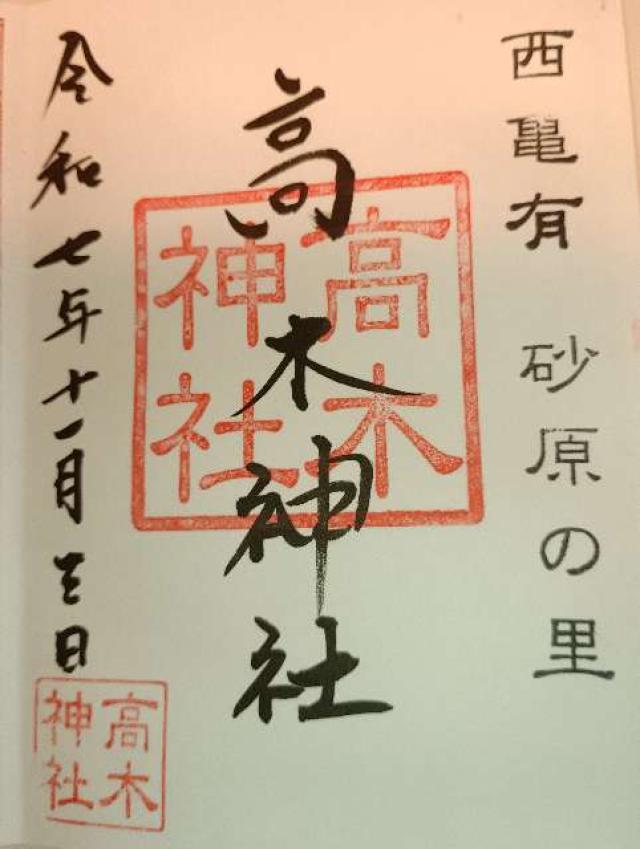 西亀有 砂原の里
高木神社
高木
神社
令和七年十一月三日
高木
神社